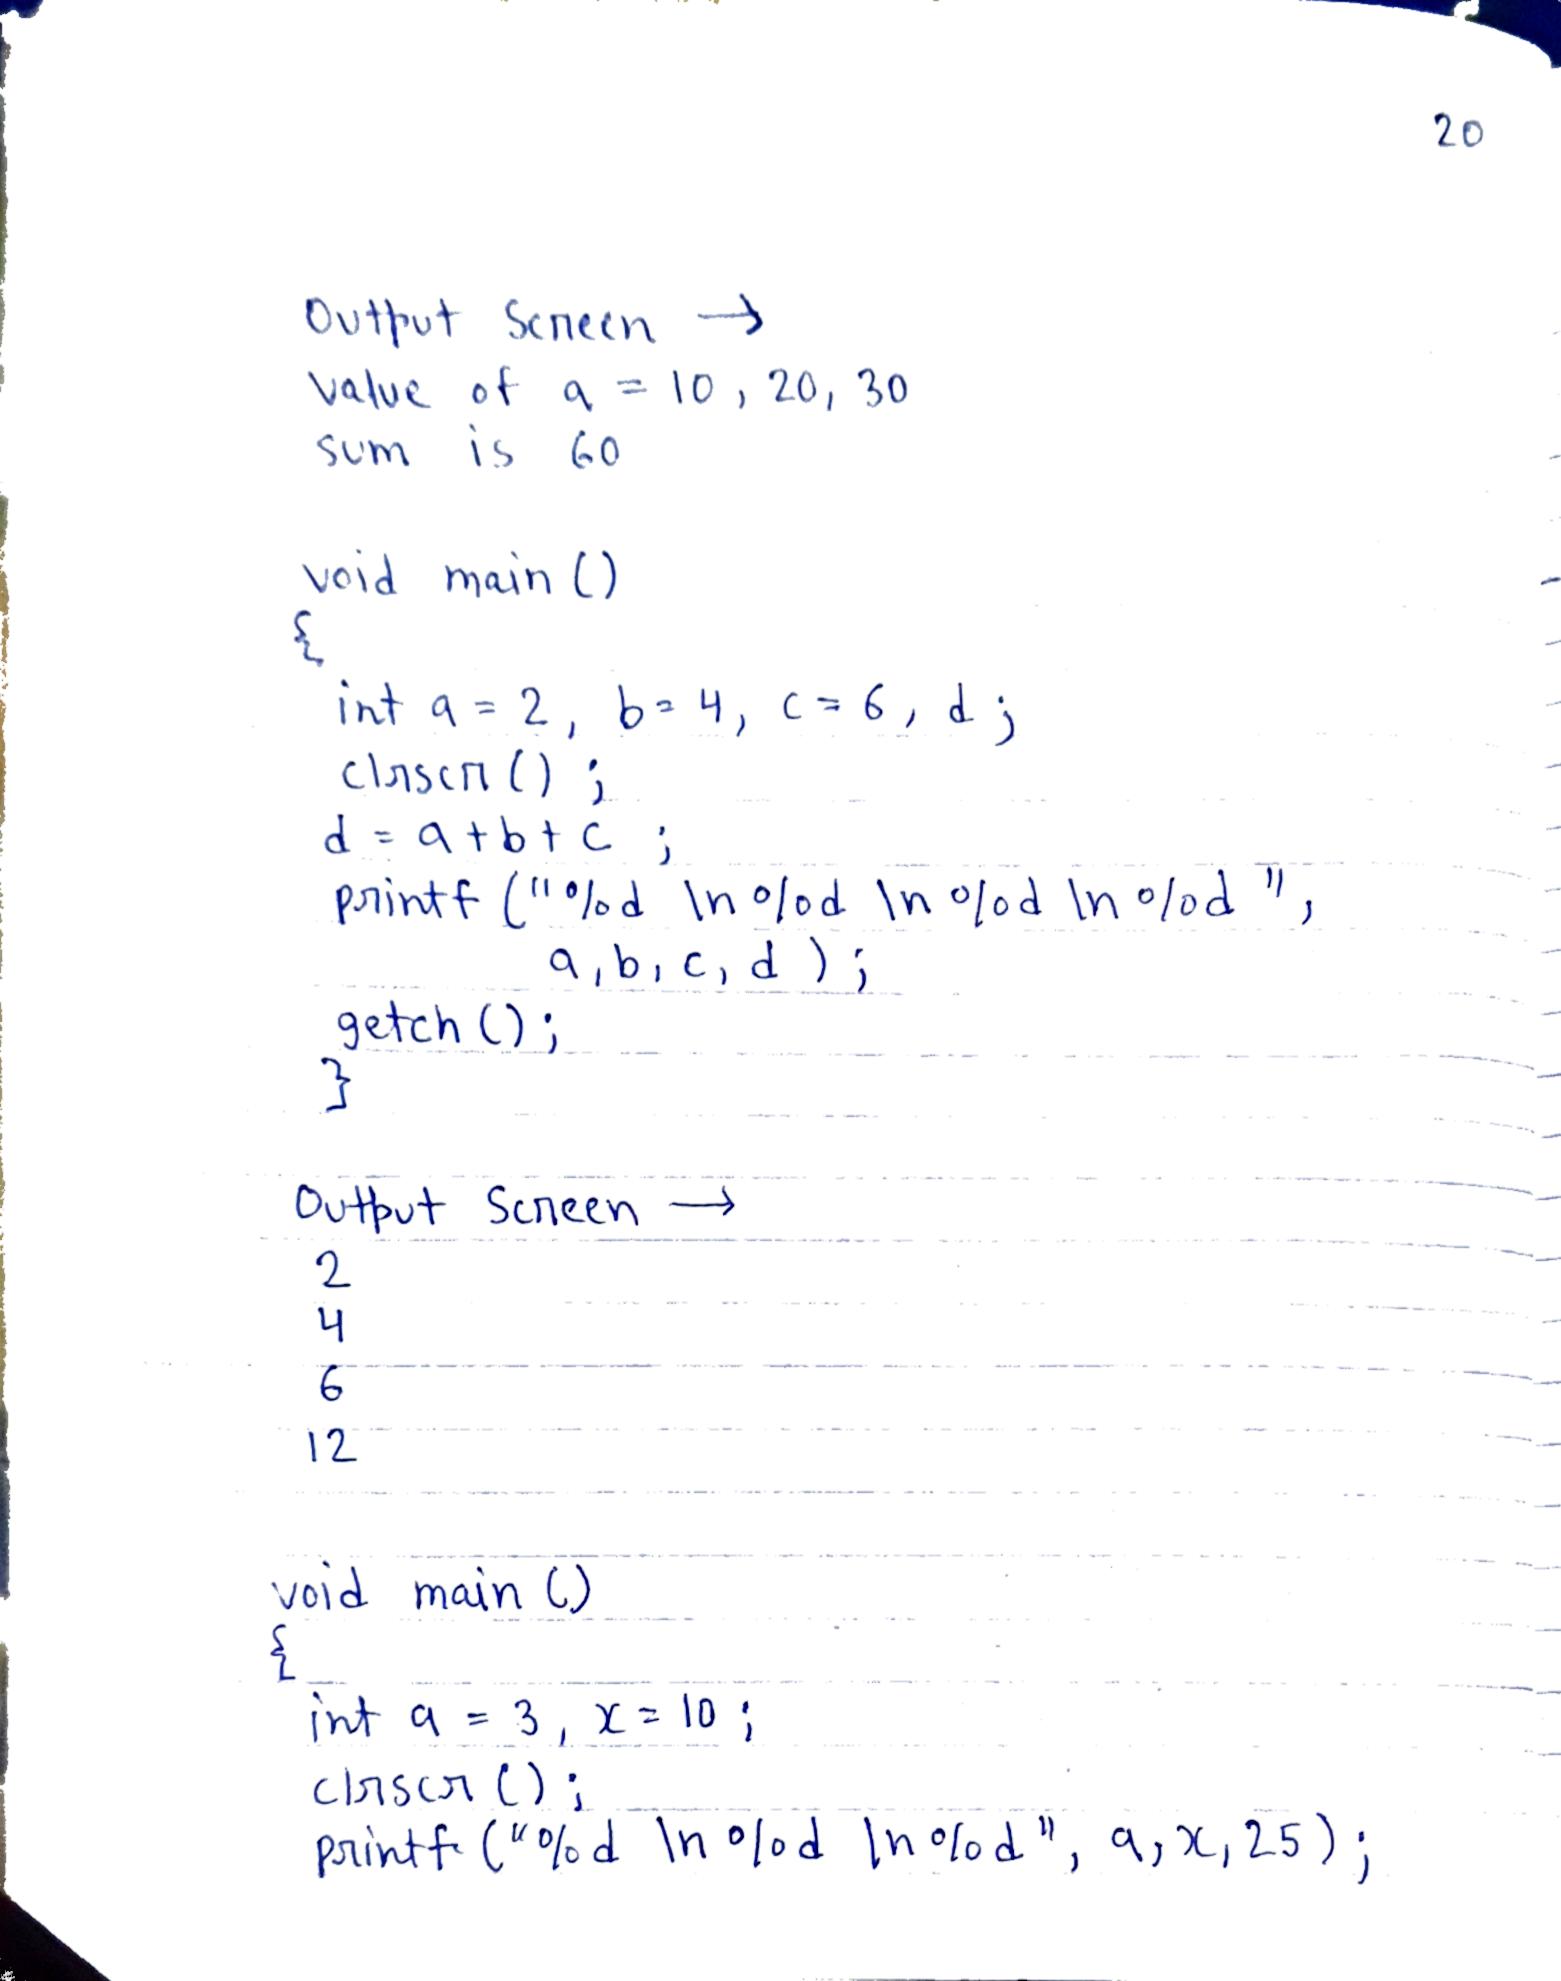 20
Output Screen →
Value of a = 10, 20, 30
sum is 60
void main ()
{
int a = 2, b = 4, c = 6, d ;
clrscr () ;
d = a + b + c ;
printf ("%d \n %d \n %d \n %d ",
a, b, c, d ) ;
getch () ;
}
Output Screen →
2
4
6
12
void main ()
{
int a = 3, x = 10 ;
clrscr () ;
printf ("%d \n %d \n %d", a, x, 25) ;